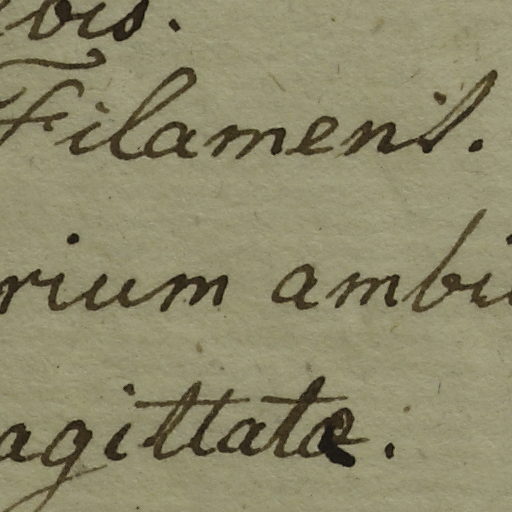 bis.
Filament.
rium ambi
agittatæ.